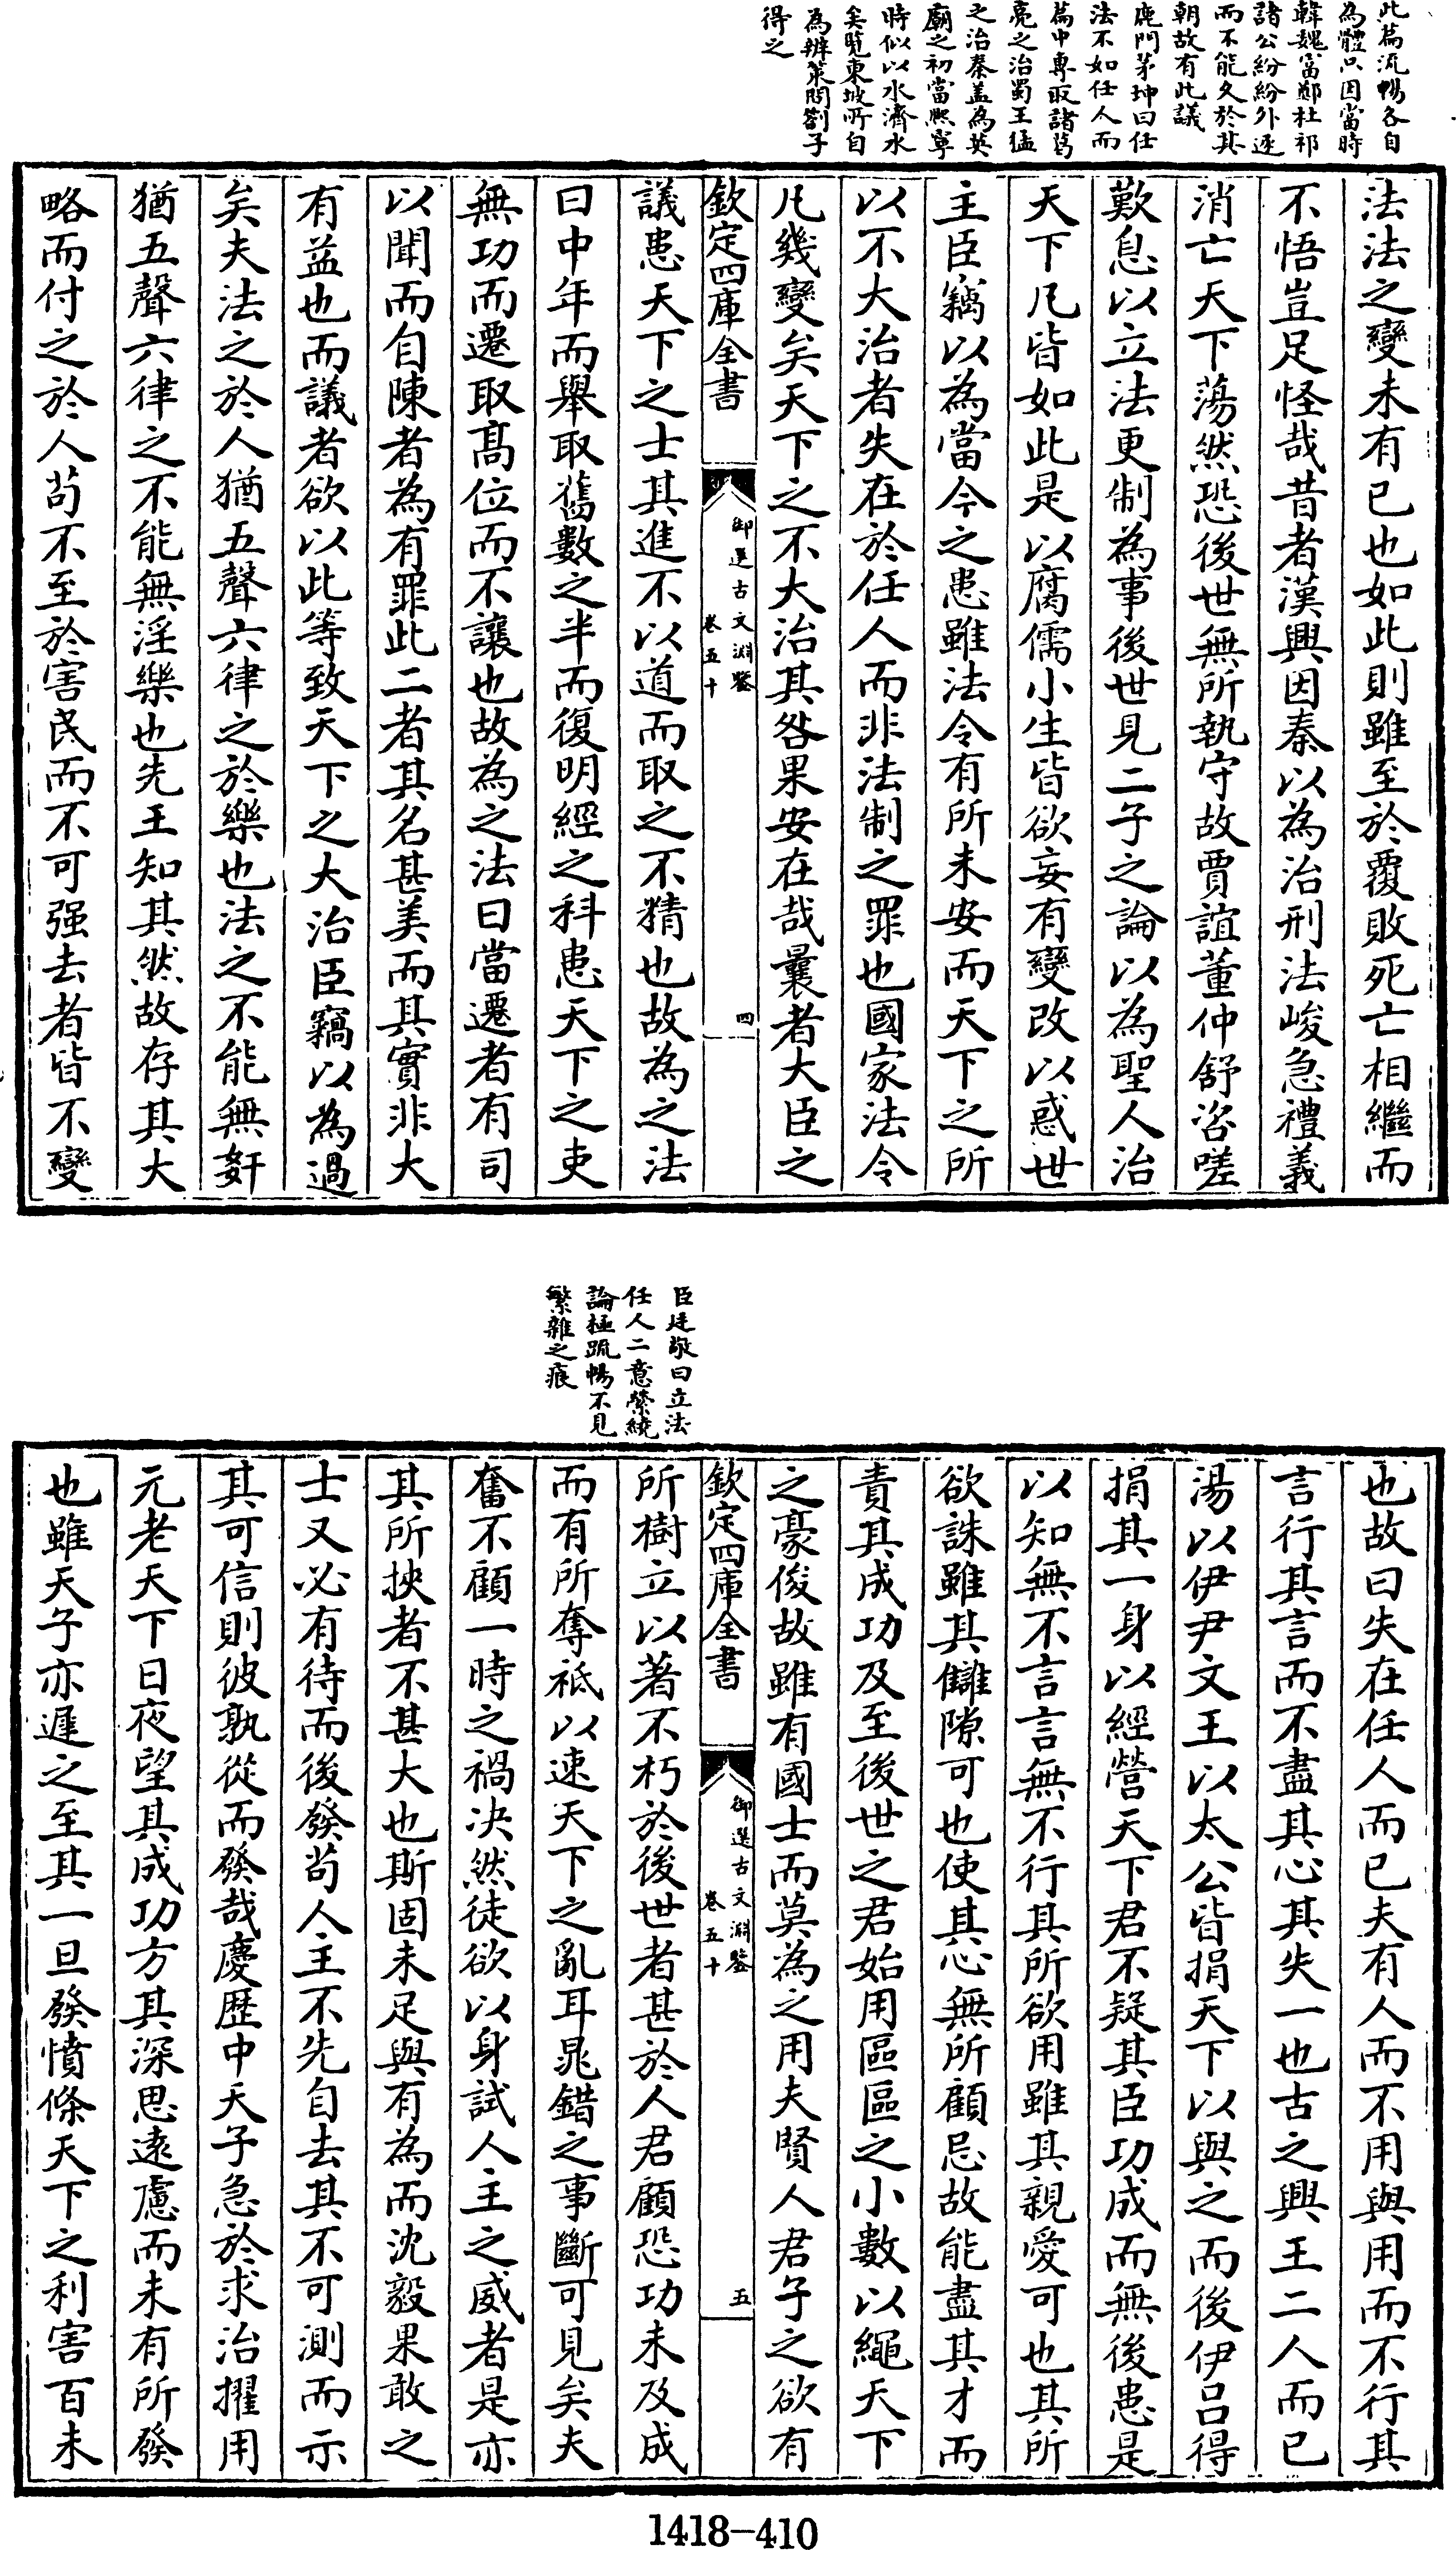 此篇流暢各自
為體只因當時
韓魏富鄭杜祁
諸公紛紛外逐
而不能久於其
朝故有此議
鹿門茅坤曰任
法不如任人而
篇中專取諸葛
亮之治蜀王猛
之治秦蓋為英
廟之初當熙寧
時似以水濟水
矣覽東坡所自
為辨策問劄子
得之
法法之變未有已也如此則雖至於覆敗死亡相繼而
不悟豈足怪哉昔者漢興因秦以為治刑法峻急禮義
消亡天下蕩然恐後世無所執守故賈誼董仲舒咨嗟
歎息以立法更制為事後世見二子之論以為聖人治
天下凡皆如此是以腐儒小生皆欲妄有變改以惑世
主臣竊以為當今之患雖法令有所未安而天下之所
以不大治者失在於任人而非法制之罪也國家法令
凡幾變矣天下之不大治其咎果安在哉曩者大臣之
欽定四庫全書
御選古文淵鑒
卷五十
四
議患天下之士其進不以道而取之不精也故為之法
曰中年而舉取舊數之半而復明經之科患天下之吏
無功而遷取髙位而不讓也故為之法曰當遷者有司
以聞而自陳者為有罪此二者其名甚美而其實非大
有益也而議者欲以此等致天下之大治臣竊以為過
矣夫法之於人猶五聲六律之於樂也法之不能無奸
猶五聲六律之不能無淫樂也先王知其然故存其大
略而付之於人苟不至於害民而不可强去者皆不變
臣廷敬曰立法
任人二意縈繞
論極疏暢不見
繁雜之痕
也故曰失在任人而已夫有人而不用與用而不行其
言行其言而不盡其心其失一也古之興王二人而已
湯以伊尹文王以太公皆捐天下以與之而後伊呂得
捐其一身以經營天下君不疑其臣功成而無後患是
以知無不言言無不行其所欲用雖其親愛可也其所
欲誅雖其讎隙可也使其心無所顧忌故能盡其才而
責其成功及至後世之君始用區區之小數以繩天下
之豪俊故雖有國士而莫為之用夫賢人君子之欲有
欽定四庫全書
御選古文淵鑒
卷五十
五
所樹立以著不朽於後世者甚於人君顧恐功未及成
而有所奪祗以速天下之亂耳晁錯之事斷可見矣夫
奮不顧一時之禍决然徒欲以身試人主之威者是亦
其所挾者不甚大也斯固未足與有為而沈毅果敢之
士又必有待而後發苟人主不先自去其不可測而示
其可信則彼孰從而發哉慶厯中天子急於求治擢用
元老天下日夜望其成功方其深思遠慮而未有所發
也雖天子亦遲之至其一旦發憤條天下之利害百未
1418-410